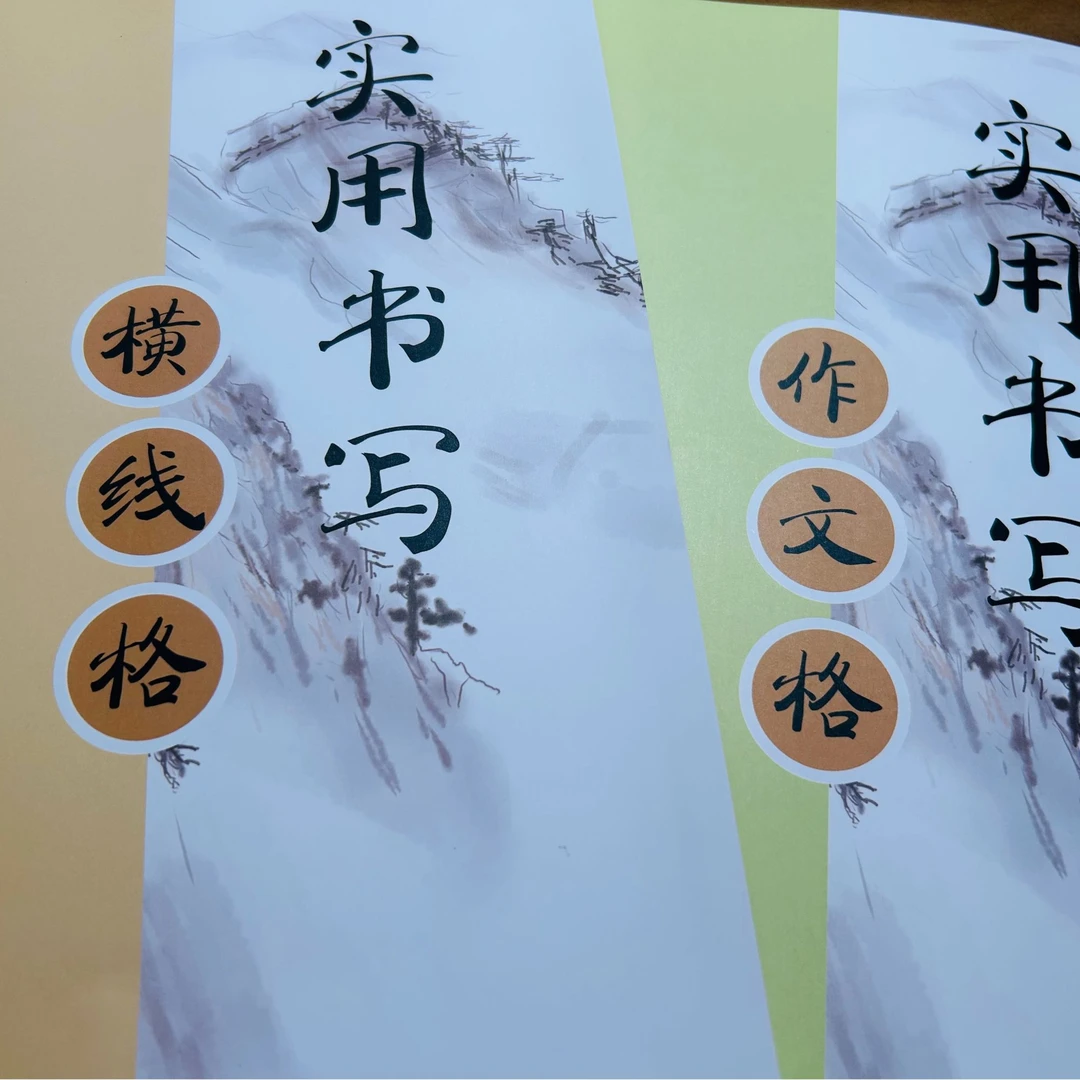 实用书写
横线格
实用书写
作文格